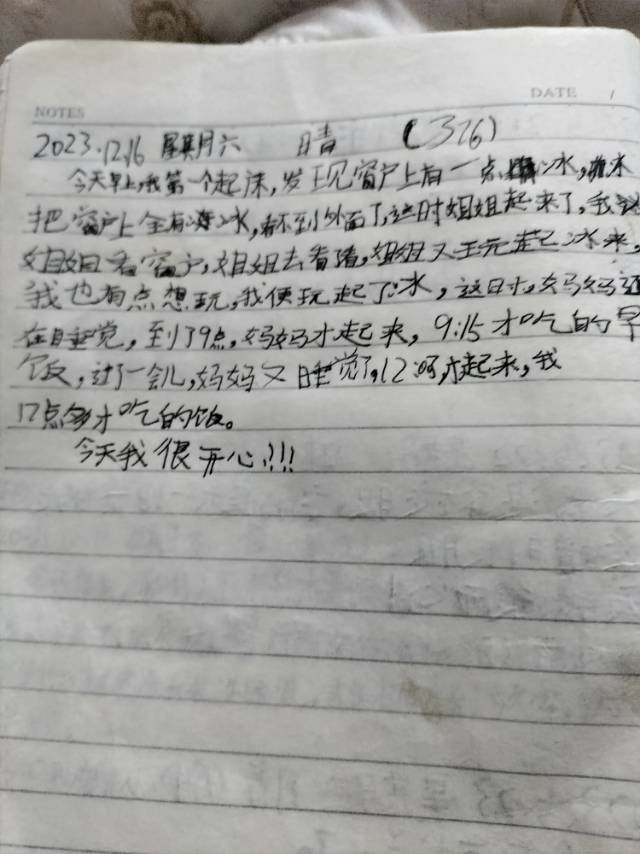 DATE
NOTES
2023.12.16 星期六 晴 (376)
今天早上,我第一个起床,发现窗户上有一点冰,
把窗户上全布满冰,看不到外面了,这时姐姐起来了,我
姐姐看窗户,姐姐去看着,姐姐又玩起冰来,
我也有点想玩,我便玩起了冰,这时,妈妈还
在睡觉,到了9点,妈妈才起来,9:15才吃的早
饭,过了一会儿,妈妈又睡觉了,12:00,才起来,我
12点多才吃的饭。
今天我很开心!!!